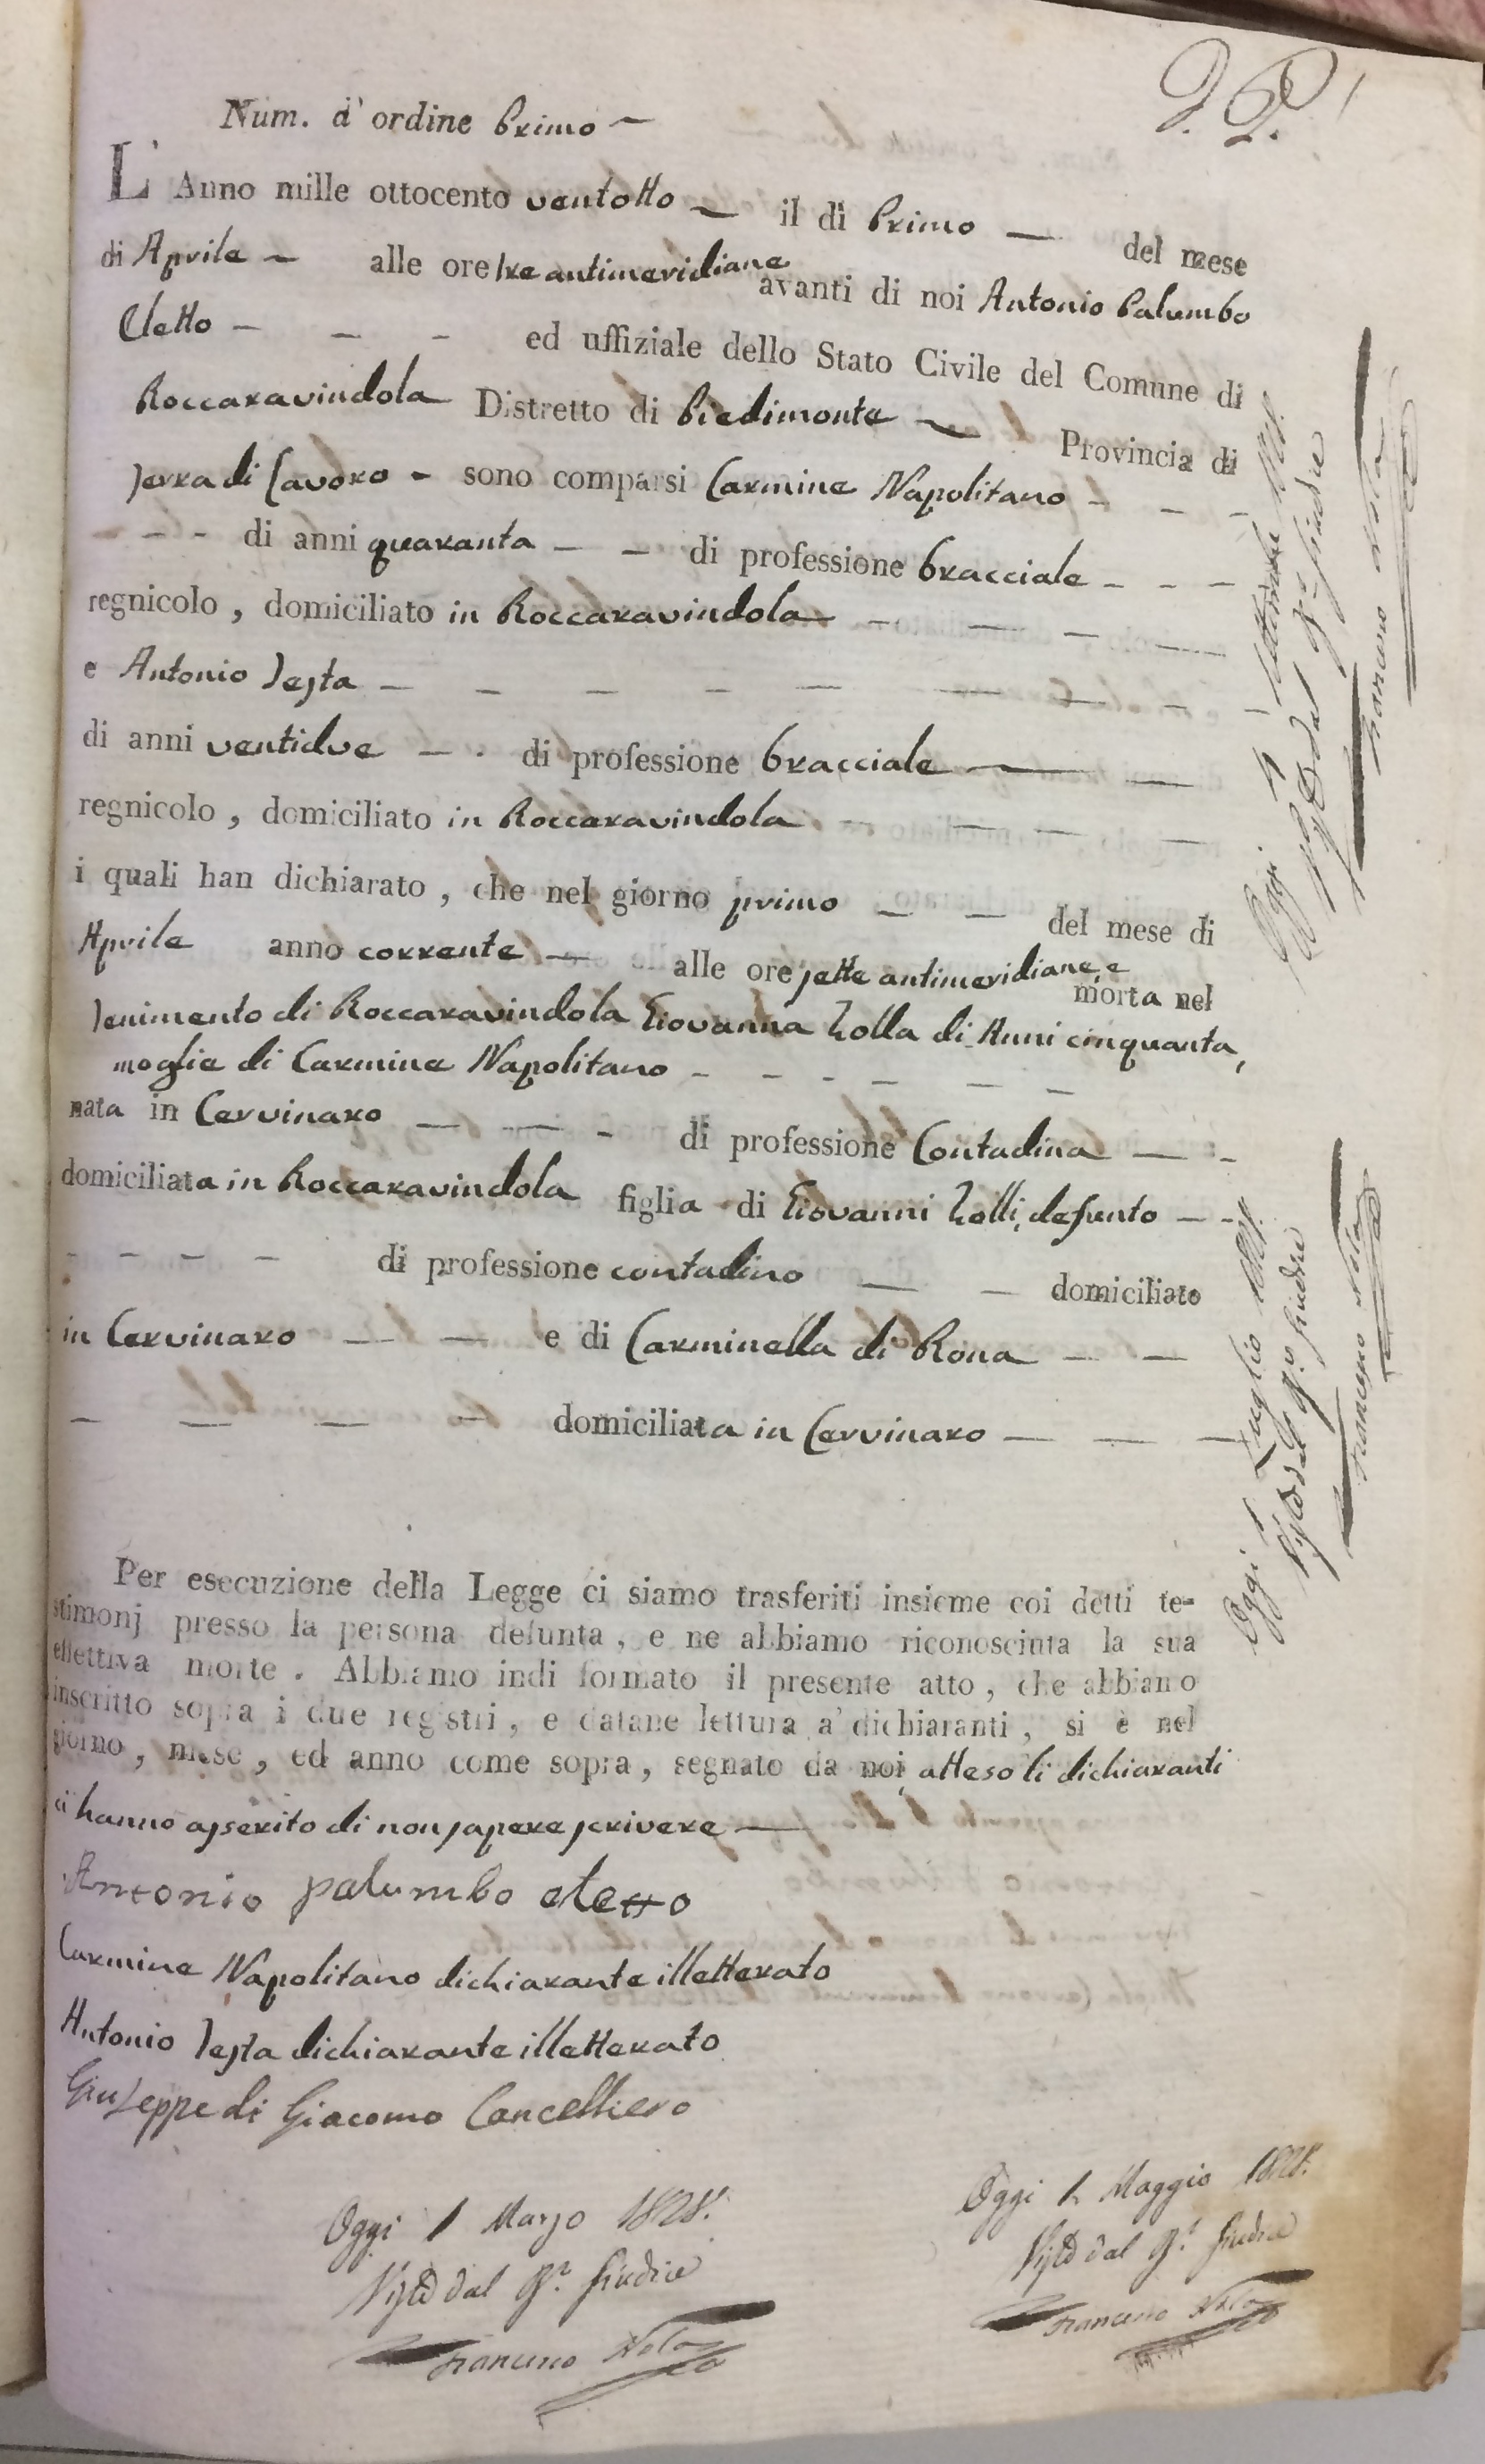 D. P. 1
Num. d'ordine Primo
L'Anno mille ottocento ventotto il dì Primo del mese
di Aprile alle ore tre antimeridiane avanti di noi Antonio Palumbo
Eletto ed uffiziale dello Stato Civile del Comune di
Roccaravindola Distretto di Piedimonte Provincia di
Terra di Lavoro sono comparsi Carmine Napolitano
di anni quaranta di professione bracciale
regnicolo, domiciliato in Roccaravindola
e Antonio Testa
di anni ventidue di professione bracciale
regnicolo, domiciliato in Roccaravindola
i quali han dichiarato, che nel giorno primo del mese di
Aprile anno corrente alle ore sette antimeridiane, e morta nel
Tenimento di Roccaravindola Giovanna Zolla di Anni cinquanta,
moglie di Carmine Napolitano
nata in Cervinaro di professione Contadina
domiciliata in Roccaravindola figlia di Giovanni Zolli, defunto
di professione contadino domiciliato
in Cervinaro e di Carminella di Rona
domiciliata in Cervinaro
Per esecuzione della Legge ci siamo trasferiti insieme coi detti te-
stimonj presso la persona defunta, e ne abbiamo riconosciuta la sua
effettiva morte. Abbiamo indi formato il presente atto, che abbiamo
inscritto sopra i due registri, e datane lettura a' dichiaranti, si è nel
giorno, mese, ed anno come sopra, segnato da noi, atteso li dichiaranti
ci hanno asserito di non sapere scrivere
Antonio palumbo eletto
Carmine Napolitano dichiarante illetterato
Antonio Testa dichiarante illetterato
Giuseppe di Giacomo Cancelliero
Oggi 1 Marzo 1828.
Visto dal Gi. Giudice
Francesco Nola
Oggi 1 Maggio 1828.
Visto dal Gi. Giudice
Francesco Nola
Oggi 1 Luglio 1828.
Visto dal Gi. Giudice
Francesco Nola
Oggi 1 Settembre 1828.
Visto dal Gi. Giudice
Francesco Nola